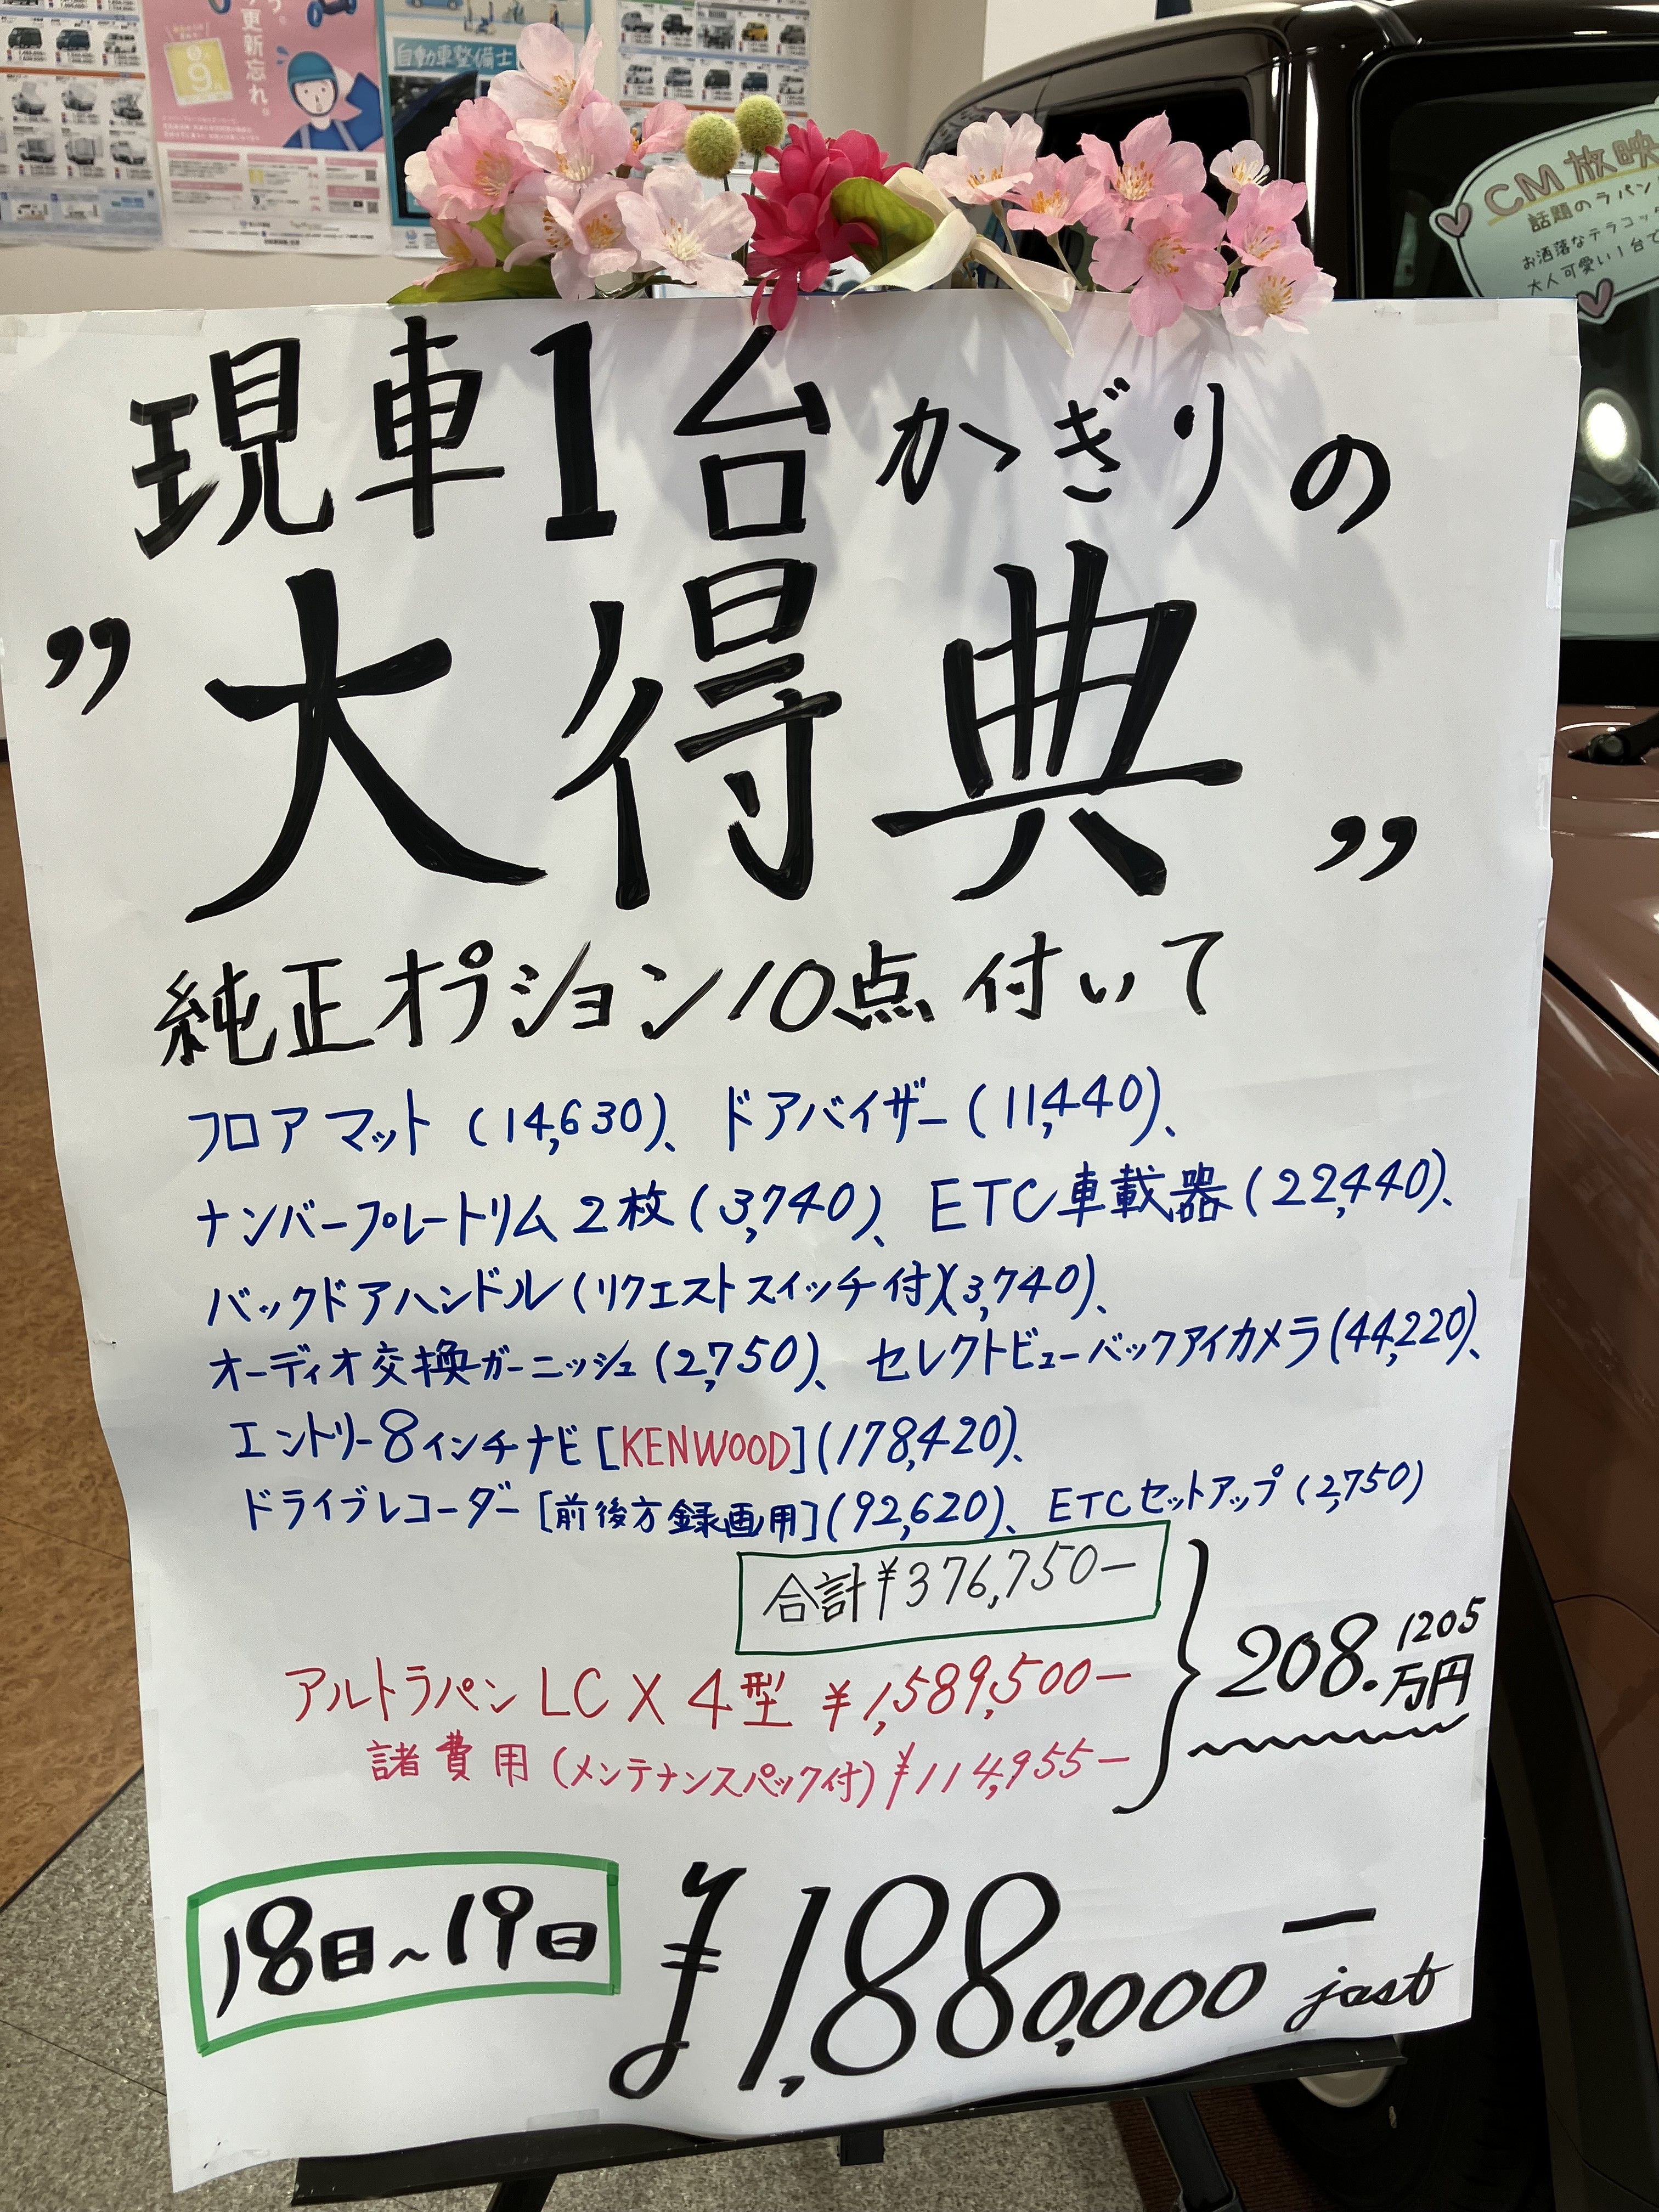 更新忘れ。
9
自動車整備士
CM放映
話題のラパン
お洒落なテラコッタ
大人可愛い1台で
現車1台かぎりの
”大得典”
純正オプション10点付いて
フロアマット(14,630)、ドアバイザー(11,440)、
ナンバープレートリム2枚(3,740)、ETC車載器(22,440)、
バックドアハンドル(リクエストスイッチ付)(3,740)、
オーディオ交換ガーニッシュ(2,750)、セレクトビューバックアイカメラ(44,220)、
エントリー8インチナビ[KENWOOD](178,420)、
ドライブレコーダー[前後方録画用](92,620)、ETCセットアップ(2,750)
合計¥376,750-
アルトラパンLCX4型 ¥1,589,500-
諸費用(メンテナンスパック付)¥114,955-
208.1205万円
18日~19日 ¥1,880,000- jast